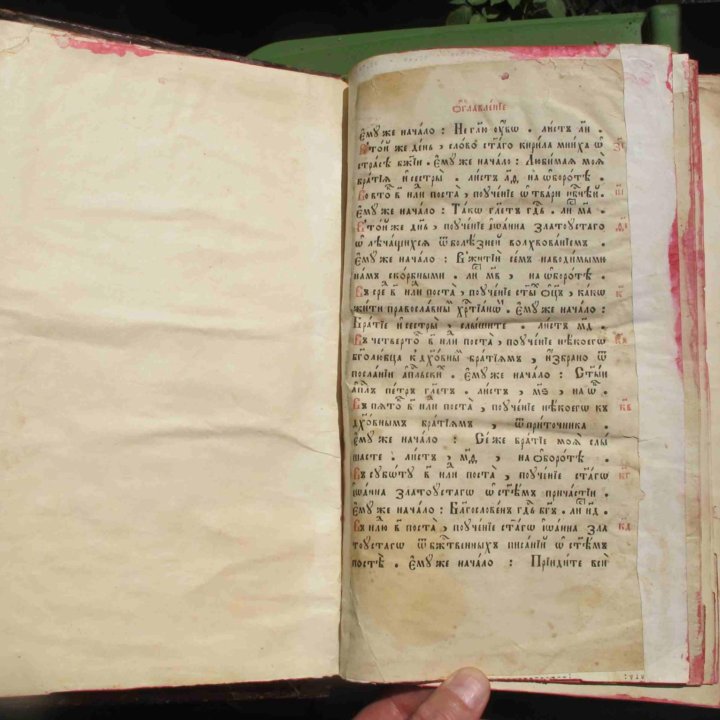 Ѡ҆главле́нїе
Є҆му́ же нача́ло : Не гл҃ю ᲂу҆́бѡ . ли́стъ л҃и .
В то́й же де́нь , сло́во ст҃а́гѡ кири́ла мни́ха ѡ҆
стра́сѣ бж҃їи . Є҆му́ же нача́ло : Люби́маѧ моѧ̀
бра́тїѧ и҆ се́стры . ли́стъ л҃д , на ѡ҆боро́тѣ . з҃і
Во вто́ в҃ нлⷭ҇и поста̀ , поꙋче́нїе ѡ҆ тва́ри нбⷭ҇нѣй . и҃і
Є҆му́ же нача́ло : Та́кѡ гл҃етъ гдⷭ҇ь . лиⷭ҇ м҃а .
В то́й же дн҃ь , поꙋче́нїе і҆ѡа́нна златоꙋ́стаго ѳ҃і
ѡ҆ лѣ́чащихсѧ ѿ болѣ́зней волхвова́нїемъ .
Є҆му́ же нача́ло : В житїѝ се́мъ наводи́мыми
на́мъ ско́рбными . лиⷭ҇ м҃в , на ѡ҆боро́тѣ .
Въ сре́ в҃ нлⷭ҇и поста̀ , поꙋче́нїе ст҃ы́ ѻ҆ц҃ъ , ка́кѡ к҃
жи́ти правосла́вны хрⷭ҇тїа́нѡⷨ . Є҆му́ же нача́ло :
Бра́тїе и҆ се́стры , слы́шите . ли́стъ м҃д .
Въ четверто́ в҃ нлⷭ҇и поста̀ , поꙋче́нїе нѣ́коегѡ к҃а
бг҃олю́бца к дх҃о́вны бра́тїѧмъ , и҆збра́но ѿ
посла́нїи а҆пⷭ҇льски . Є҆му́ же нача́ло : Ст҃ы́и
а҆пⷭ҇лъ пе́тръ гл҃етъ . ли́стъ , м҃ѕ , на ѡ҆ .
Въ пѧто́ в҃ нлⷭ҇и поста̀ , поꙋче́нїе нѣ́коегѡ къ к҃в
дх҃о́внымъ бра́тїѧмъ , ѿ при́точника .
Є҆му́ же нача́ло : Се́ же бра́тїе моѧ̀ слы́
шасте . ли́стъ , м҃д , на ѡ҆боро́тѣ .
Въ сꙋббѡ́тꙋ в҃ нлⷭ҇и поста̀ , поꙋче́нїе ст҃а́гѡ к҃г
і҆ѡа́нна златоꙋ́стагѡ ѡ҆ ст҃ѣ́мъ прича́стїи .
Є҆му́ же нача́ло : Блгⷭ҇ослове́нъ гдⷭ҇ь бг҃ъ . лиⷭ҇ н҃д .
Въ нлⷭ҇ю в҃ поста̀ , поꙋче́нїе ст҃а́гѡ і҆ѡа́нна зла к҃д
тоꙋ́стагѡ ѿ бжⷭ҇твенныхъ писа́нїй ѡ҆ ст҃ѣ́мъ
постѣ̀ . Є҆му́ же нача́ло : Прїиди́те всѝ